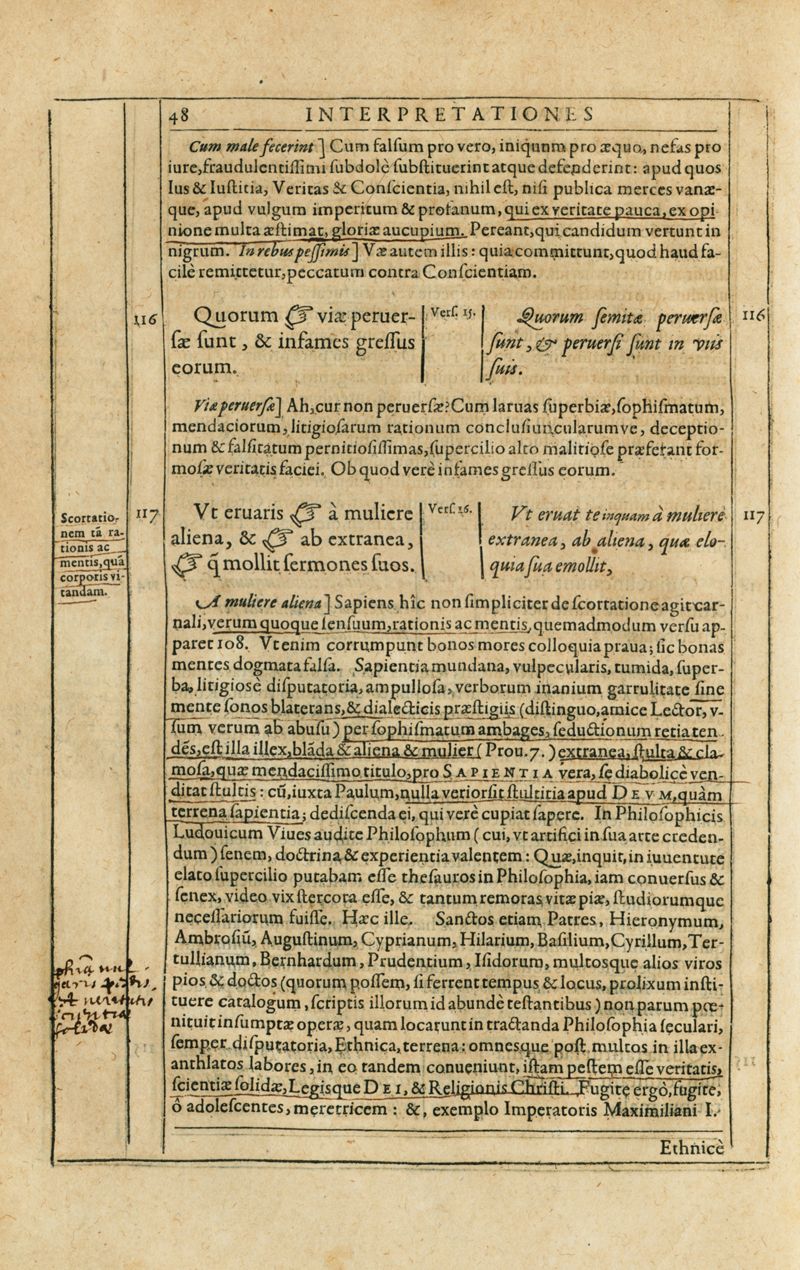 48 INTERPRETATIONES
Cum male fecerint] Cum falſum pro vero, iniquum pro æquo, nefas pro
iure, fraudulentiſſimi ſubdolè ſubſtituerint atque defenderint: apud quos
Ius & Iuſtitia, Veritas & Conſcientia, nihil eſt, niſi publica merces vanæ-
que, apud vulgum imperitum & profanum, qui ex veritate pauca, ex opi
nione multa æſtimat, gloriæ aucupium. Pereant, qui candidum vertunt in
nigrum. In rebus peſſimis] Væ autem illis: quia committunt, quod haud fa-
cilè remittetur, peccatum contra Conſcientiam.
116
Quorum viæ peruer-
ſæ ſunt, & infames greſſus
eorum.
Verſ. 15.
Quorum ſemitæ peruerſæ
ſunt, & peruerſi ſunt in viis
ſuis.
116
Viæ peruerſæ] Ah, cur non peruerſæ? Cum laruas ſuperbiæ, ſophiſmatum,
mendaciorum, litigioſarum rationum concluſiuncularumve, deceptio-
num & falſitatum pernitioſiſſimas, ſupercilio alto malitioſe præferant for-
moſæ veritatis faciei. Ob quod verè infames greſſus eorum.
117
Vt eruaris à muliere
aliena, & ab extranea,
q̃ mollit ſermones ſuos.
Verſ. 16.
Vt eruat te inquam à muliere
extranea, ab aliena, quæ elo-
quia ſua emollit,
117
Scortatio-
nem tã ra-
tionis ac
mentis, quã
corporis vi-
tandam.
A muliere aliena] Sapiens hîc non ſimpliciter de ſcortatione agit car-
nali, verum quoque ſenſuum, rationis ac mentis, quemadmodum verſu ap-
paret 108. Vt enim corrumpunt bonos mores colloquia praua; ſic bonas
mentes dogmata falſa. Sapientia mundana, vulpecularis, tumida, ſuper-
ba, litigiosè diſputatoria, ampulloſa, verborum inanium garrulitate ſine
mente ſonos blaterans, & dialecticis præſtigiis (diſtinguo, amice Lector, v-
ſum verum ab abuſu) per ſophiſmatum ambages, ſeductionum retia ten-
dẽs, eſt illa illex, blãda & aliena & mulier (Prou. 7.) extranea, ſtulta & cla-
moſa, quæ mendaciſſimo titulo, pro SAPIENTIA vera, ſe diabolicè ven-
ditat ſtultis: cũ, iuxta Paulum, nulla verior ſit ſtultitia apud DEVM, quàm
terrena ſapientia; dediſcenda ei, qui verè cupiat ſapere. In Philoſophicis
Ludouicum Viues audite Philoſophum (cui, vt artifici in ſua arte creden-
dum) ſenem, doctrina & experientia valentem: Quæ, inquit, in iuuentute
elato ſupercilio putabam eſſe theſauros in Philoſophia, iam conuerſus &
ſenex, video vix ſtercora eſſe, & tantum remoras vitæ piæ, ſtudiorumque
neceſſariorum fuiſſe. Hæc ille. Sanctos etiam Patres, Hieronymum,
Ambroſiũ, Auguſtinum, Cyprianum, Hilarium, Baſilium, Cyrillum, Ter-
tullianum, Bernhardum, Prudentium, Iſidorum, multosque alios viros
pios & doctos (quorum poſſem, ſi ferrent tempus & locus, prolixum inſti-
tuere catalogum, ſcriptis illorum id abundè teſtantibus) non parum pœ-
nituit inſumptæ operæ, quam locarunt in tractanda Philoſophia ſeculari,
ſemper diſputatoria, Ethnica, terrena: omnesque poſt multos in illa ex-
anthlatos labores, in eo tandem conueniunt, iſtam peſtem eſſe veritatis,
ſcientiæ ſolidæ, Legisque DEI, & Religionis Chriſti. Fugite ergò, fugite,
ô adoleſcentes, meretricem: &, exemplo Imperatoris Maximiliani I.
Ethnicè